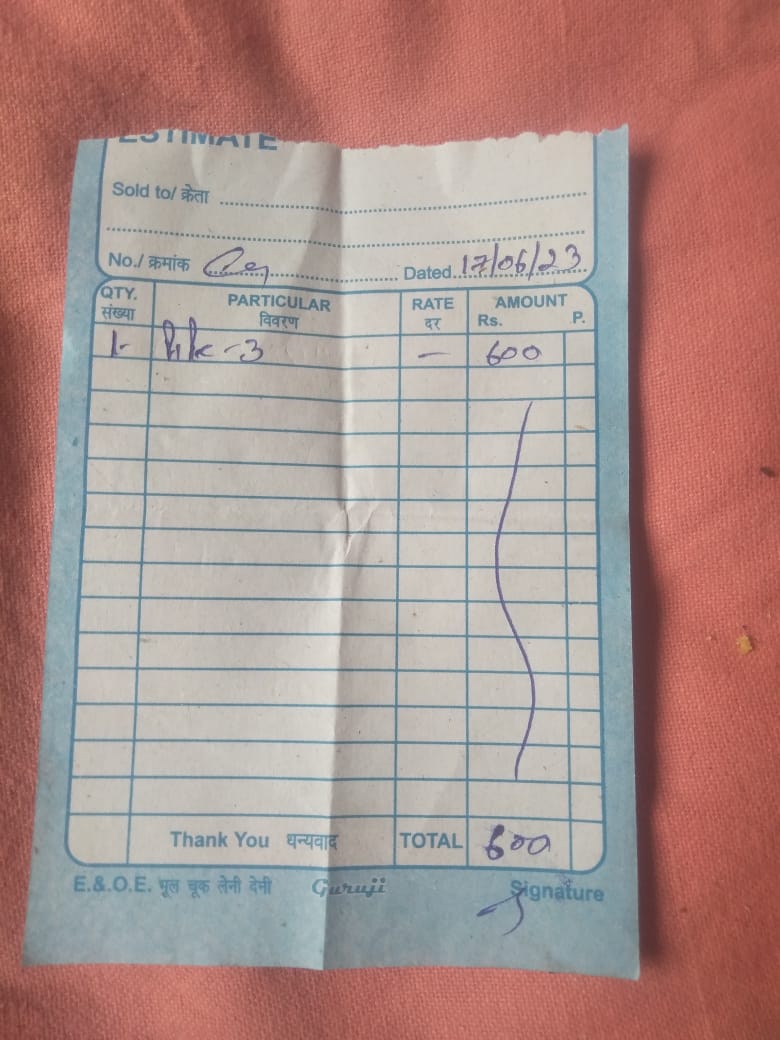 ESTIMATE
Sold to/ क्रेता
No./ क्रमांक Dated 17/06/23
QTY. संख्या PARTICULAR विवरण RATE दर AMOUNT Rs. P.
1- - 600
Thank You धन्यवाद TOTAL 600
E.&.O.E. भूल चूक लेनी देनी Guruji Signature